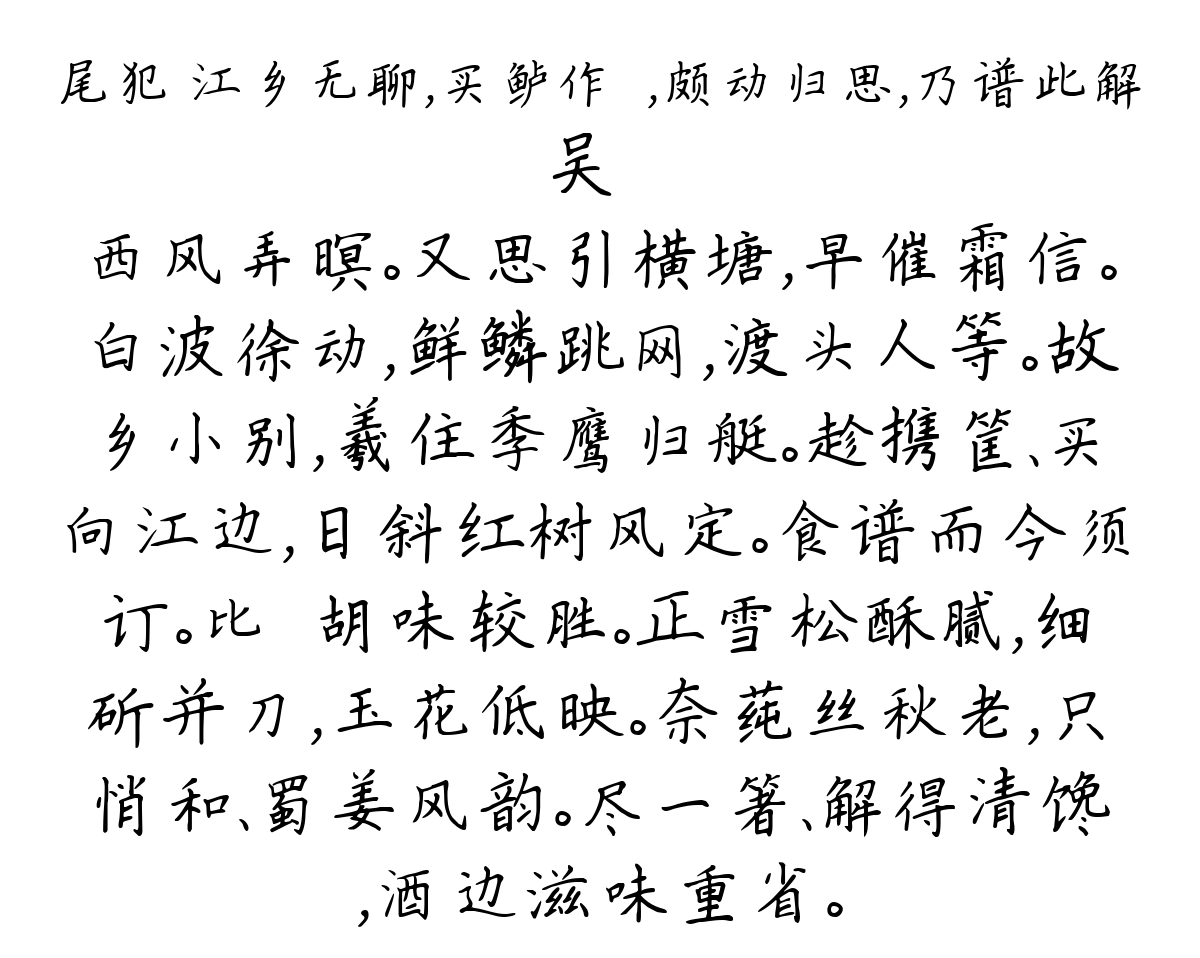 尾犯 江乡无聊,买鲈作 ,颇动归思,乃谱此解
吴
西风弄暝。又思引横塘,早催霜信。
白波徐动,鲜鳞跳网,渡头人等。故
乡小别,羲住季鹰归艇。趁携筐、买
向江边,日斜红树风定。食谱而今须
订。比 胡味较胜。正雪松酥腻,细
斫并刀,玉花低映。奈莼丝秋老,只
悄和、蜀姜风韵。尽一箸、解得清馋
,酒边滋味重省。